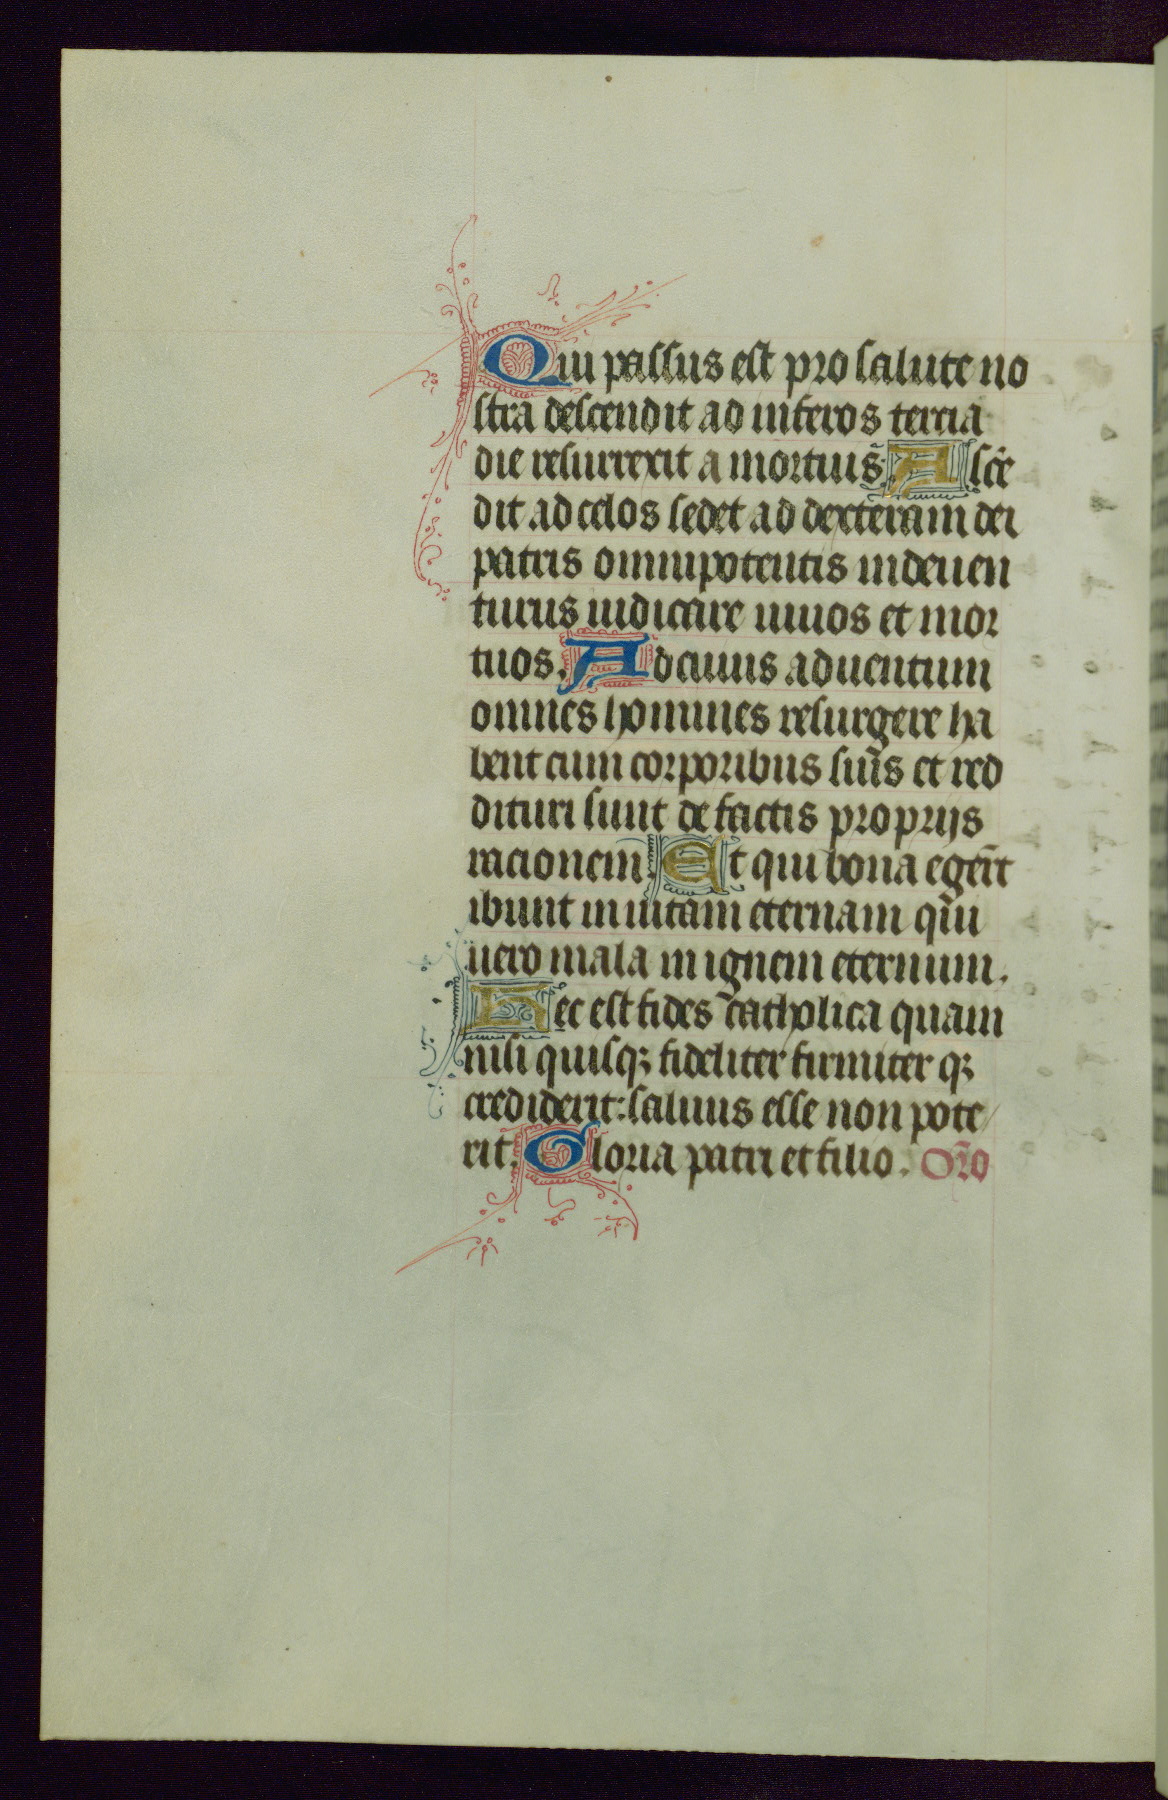 Qui passus est pro salute no
stra descendit ad inferos tercia
die resurrexit a mortuis̄. Ascē
dit ad celos sedet ad dexteram dei
patris omnipotentis inde uen
turus iudicare uiuos et mor
tuos. Ad cuius aduentum
omnes homines resurgere ha
bent cum corporibus suīs et red
dituri sunt de factis proprijs
racionem. Et qui bona egerūt
ibunt in uitam eternam qui̅
uero mala in ignem eternum.
Hec est fides catholica quam
nisi quisqꝫ fideliter firmiter qꝫ
crediderit: saluus esse non pote
rit. Gloria patri et filio. Or̄o